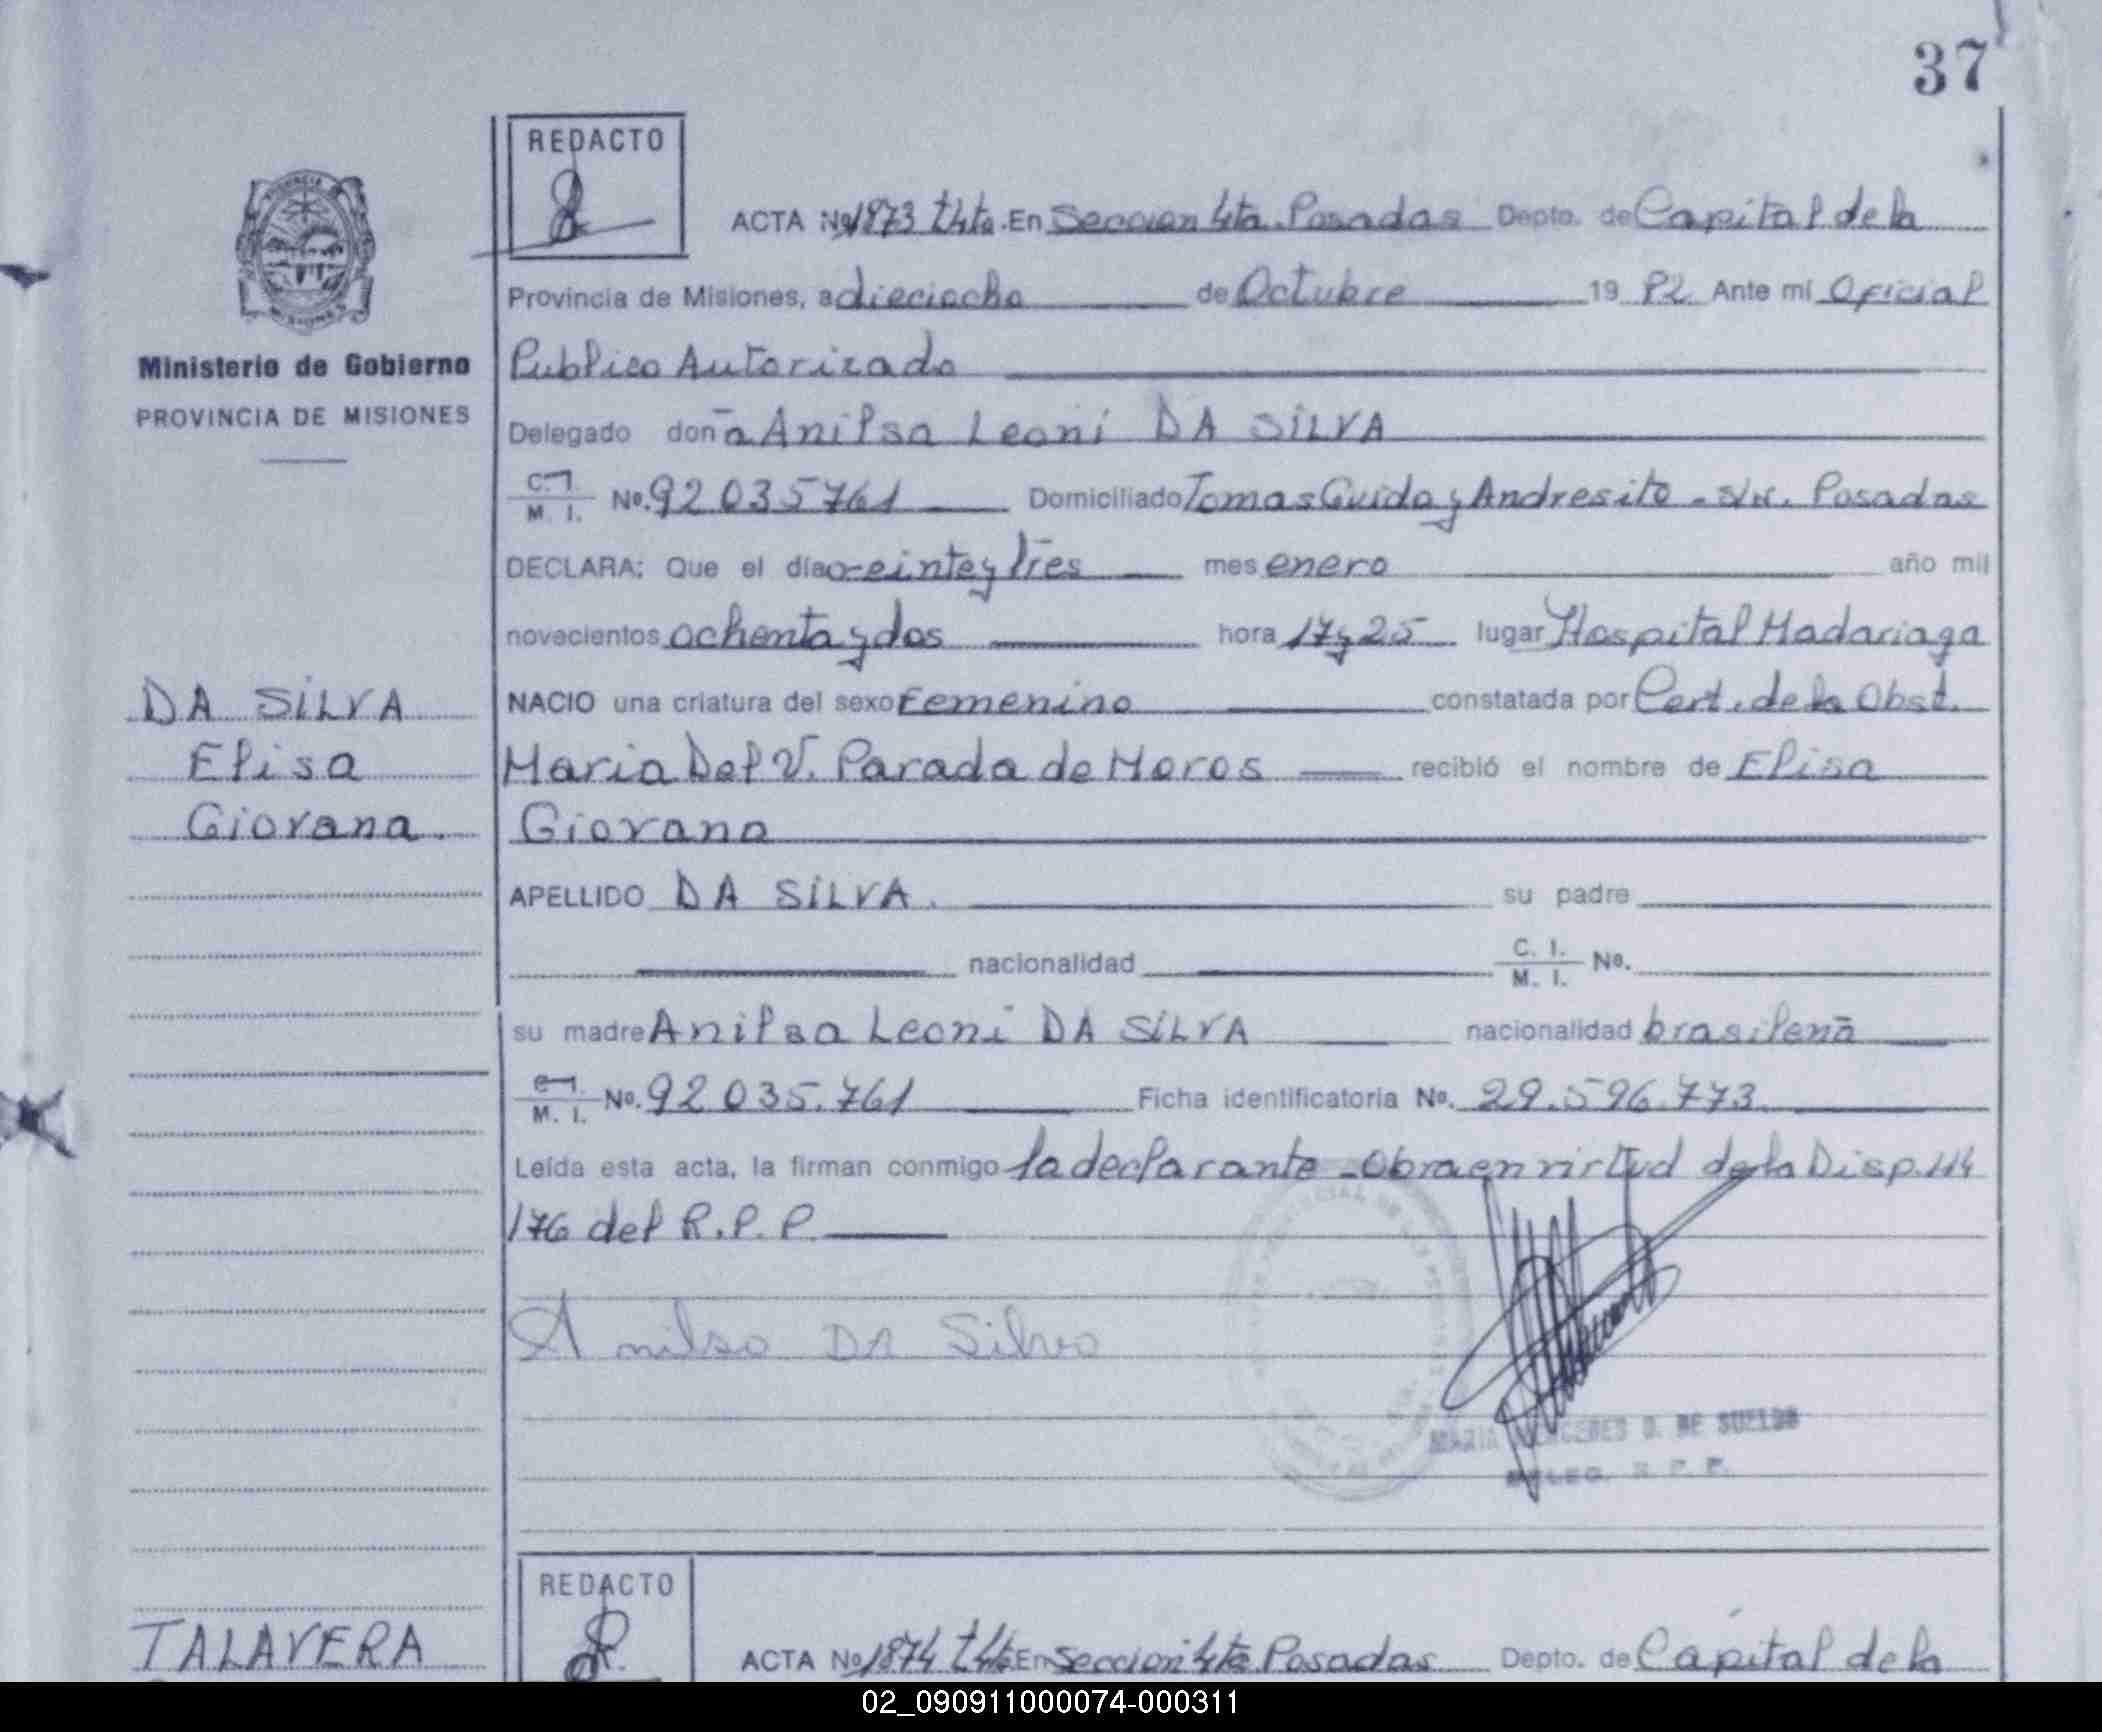 37
REDACTO
ACTA No 1873 t4to. En Seccion 4ta. Posadas Depto. de Capital de la
Provincia de Misiones, a dieciocho de Octubre 19 82 Ante mí Oficial
Ministerio de Gobierno
PROVINCIA DE MISIONES
Publico Autorizado
Delegado doña Anilsa Leoni DA SILVA
C. I. M. I. No. 92 035 761 Domiciliado Tomas Guido y Andresito - s/n. Posadas
DECLARA: Que el día veinte y tres mes enero año mil
novecientos ochenta y dos hora 17 y 25 lugar Hospital Madariaga
DA SILVA
Elisa
Giovana.
NACIO una criatura del sexo Femenino constatada por Cert. de la Obst.
Maria Del V. Parada de Moros recibió el nombre de Elisa
Giovana
APELLIDO DA SILVA. su padre
nacionalidad C. I. M. I. No.
su madre Anilsa Leoni DA SILVA nacionalidad brasileña
C. I. M. I. No. 92 035.761 Ficha identificatoria No. 29.596.773
Leída esta acta, la firman conmigo la declarante - Obra en virtud de la Disp. 114
176 del R.P.P.
Anilsa DA Silva
MARIA MERCEDES D. DE SUELDO
DELEG. R. P. P.
REDACTO
TALAVERA
ACTA No 1874 t4to En Seccion 4ta Posadas Depto. de Capital de la
02_090911000074-000311